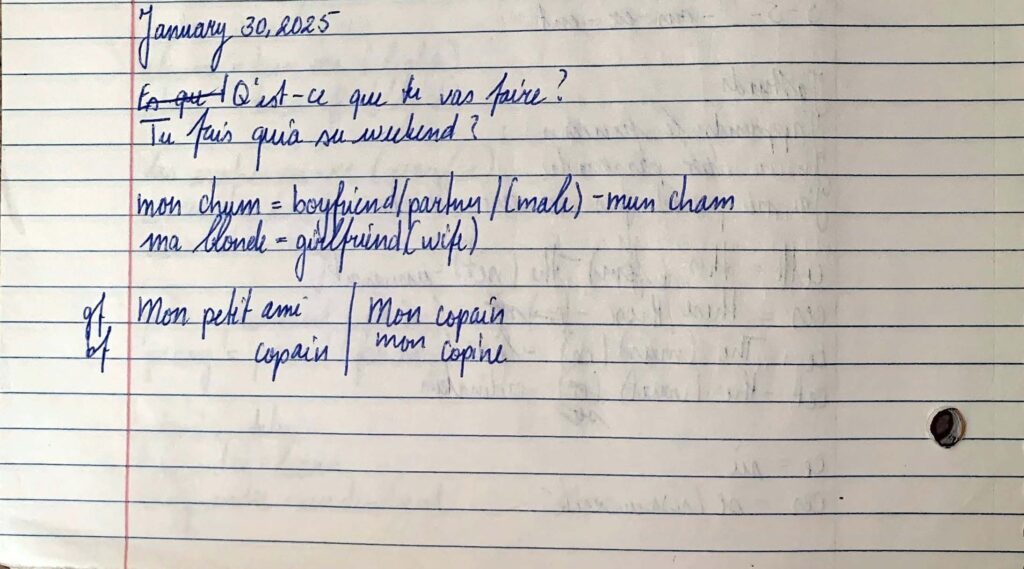 January 30, 2025
Es que Q'est-ce que tu vas faire?
Tu fais quoi su weekend?
mon chum = boyfriend/partner/(male) - mun cham
ma blonde = girlfriend (wife)
gf Mon petit ami | Mon copain
bf copain | mon copine